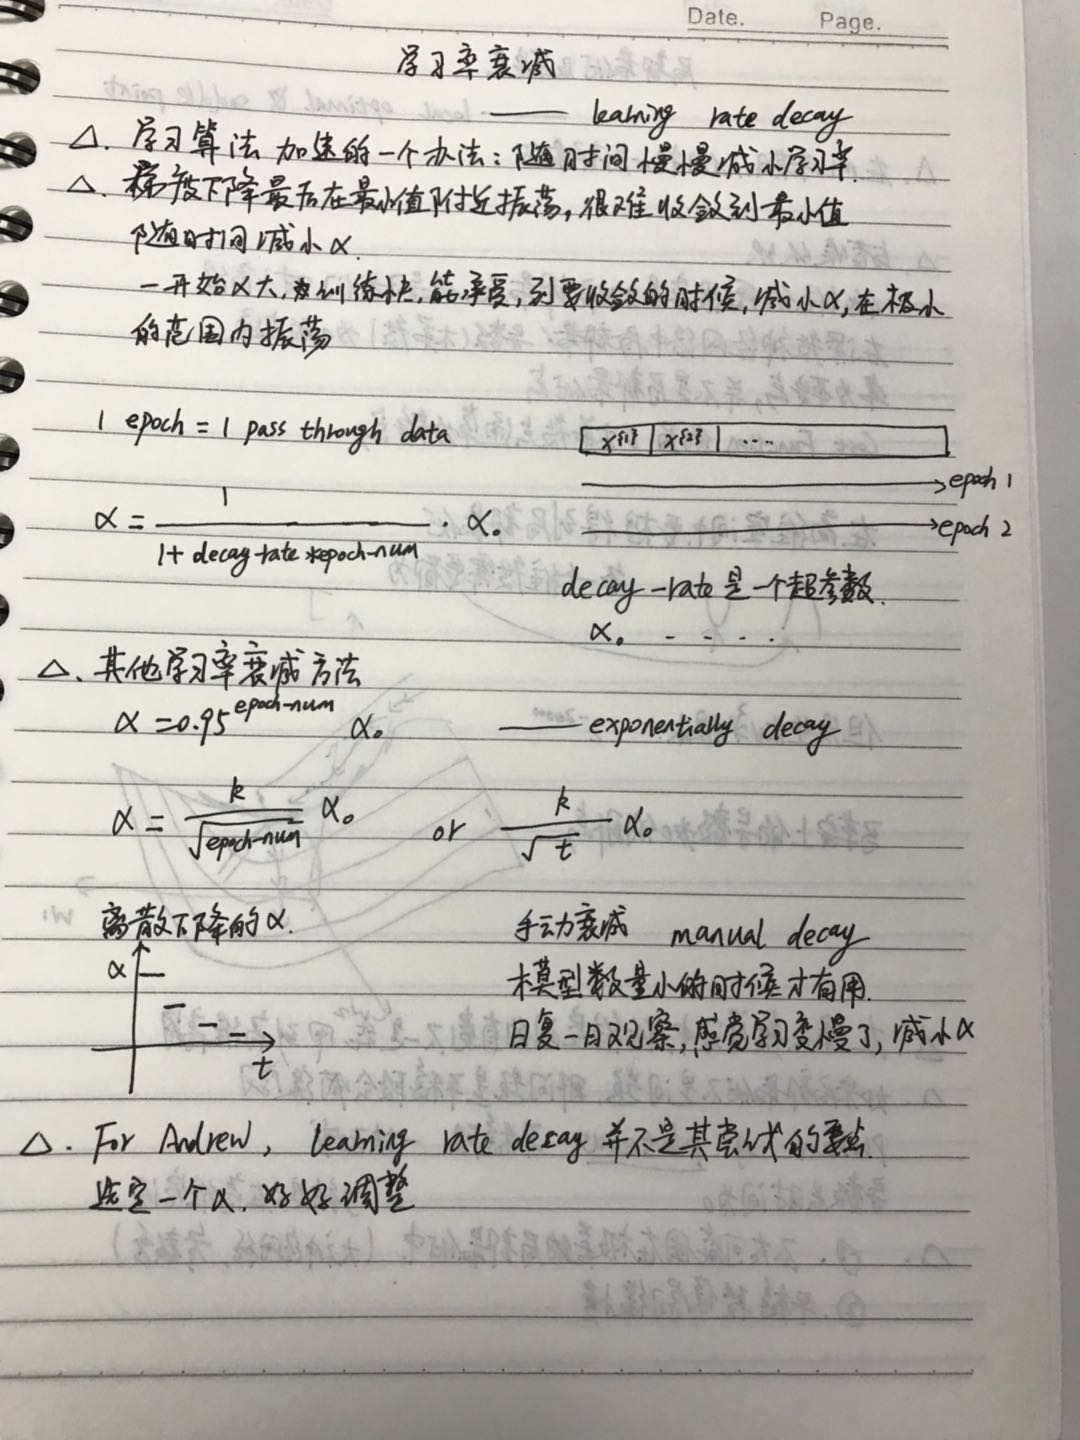 Date. Page.
学习率衰减
—— learning rate decay
△. 学习算法加速的一个办法：随时间慢慢减小学习率.
△. 梯度下降最后在最小值附近振荡，很难收敛到最小值
随时间减小α.
一开始α大，训练快，能承受，到要收敛的时候，减小α，在极小
的范围内振荡
1 epoch = 1 pass through data
x^{1} | x^{2} | ....
epoch 1
α = 1 / (1 + decay-rate * epoch-num) · α₀
epoch 2
decay-rate 是一个超参数.
α₀ - - - -
△. 其他学习率衰减方法
α = 0.95^epoch-num α₀ —— exponentially decay
α = k / √epoch-num α₀ or k / √t α₀
离散下降的α.
α
t
手动衰减 manual decay
模型数量小的时候才有用.
日复一日观察，感觉学习变慢了，减小α
△. For Andrew, learning rate decay 并不是其尝试的要点.
选定一个α，好好调整